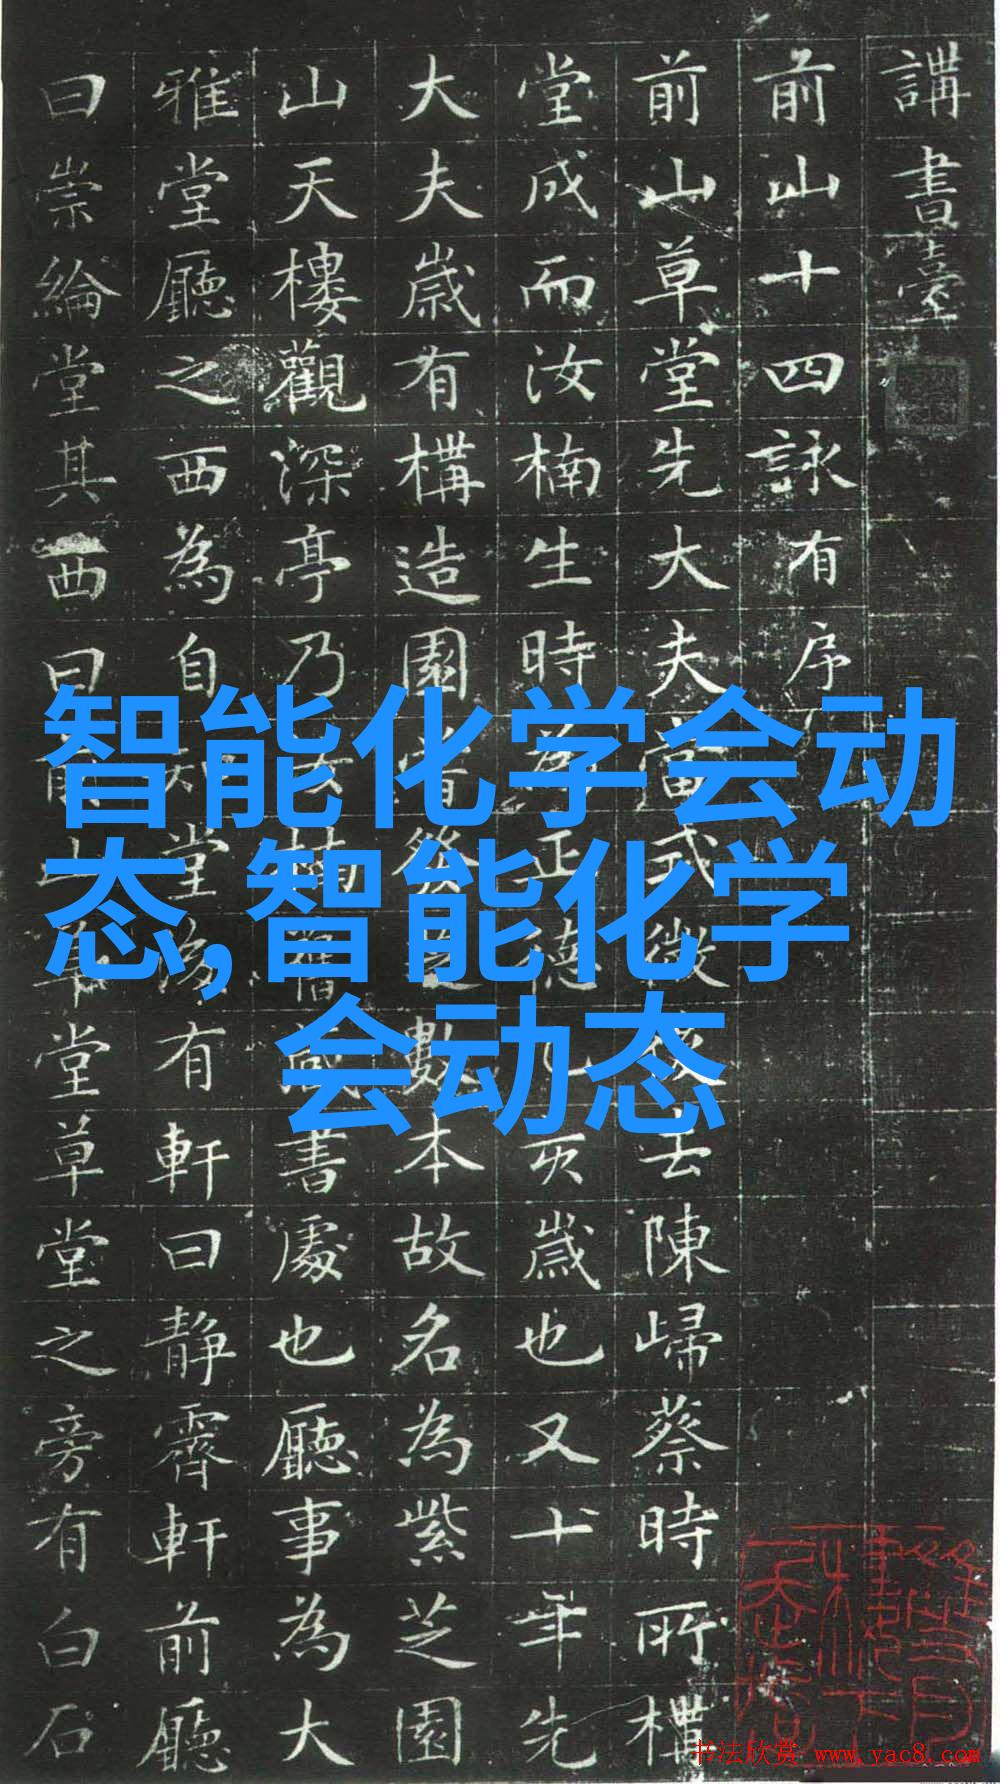 講書臺
前山十四詠有序
前山草堂先大夫式微後去陳歸蔡時所構
堂成而汝楠生時為正德乙亥歲也又十年先
大夫歲有構造園嘗發芝數本故名為紫芝園
山天樓觀深亭乃汝楠舊藏書處也廳事為大
雅堂廳之西為自知堂後有軒曰靜霽軒前廳
曰崇綸堂其西曰前山草堂草堂之旁有白石
智能化学会动
态,智能化学
会动态
书法欣赏 www.yac8.com